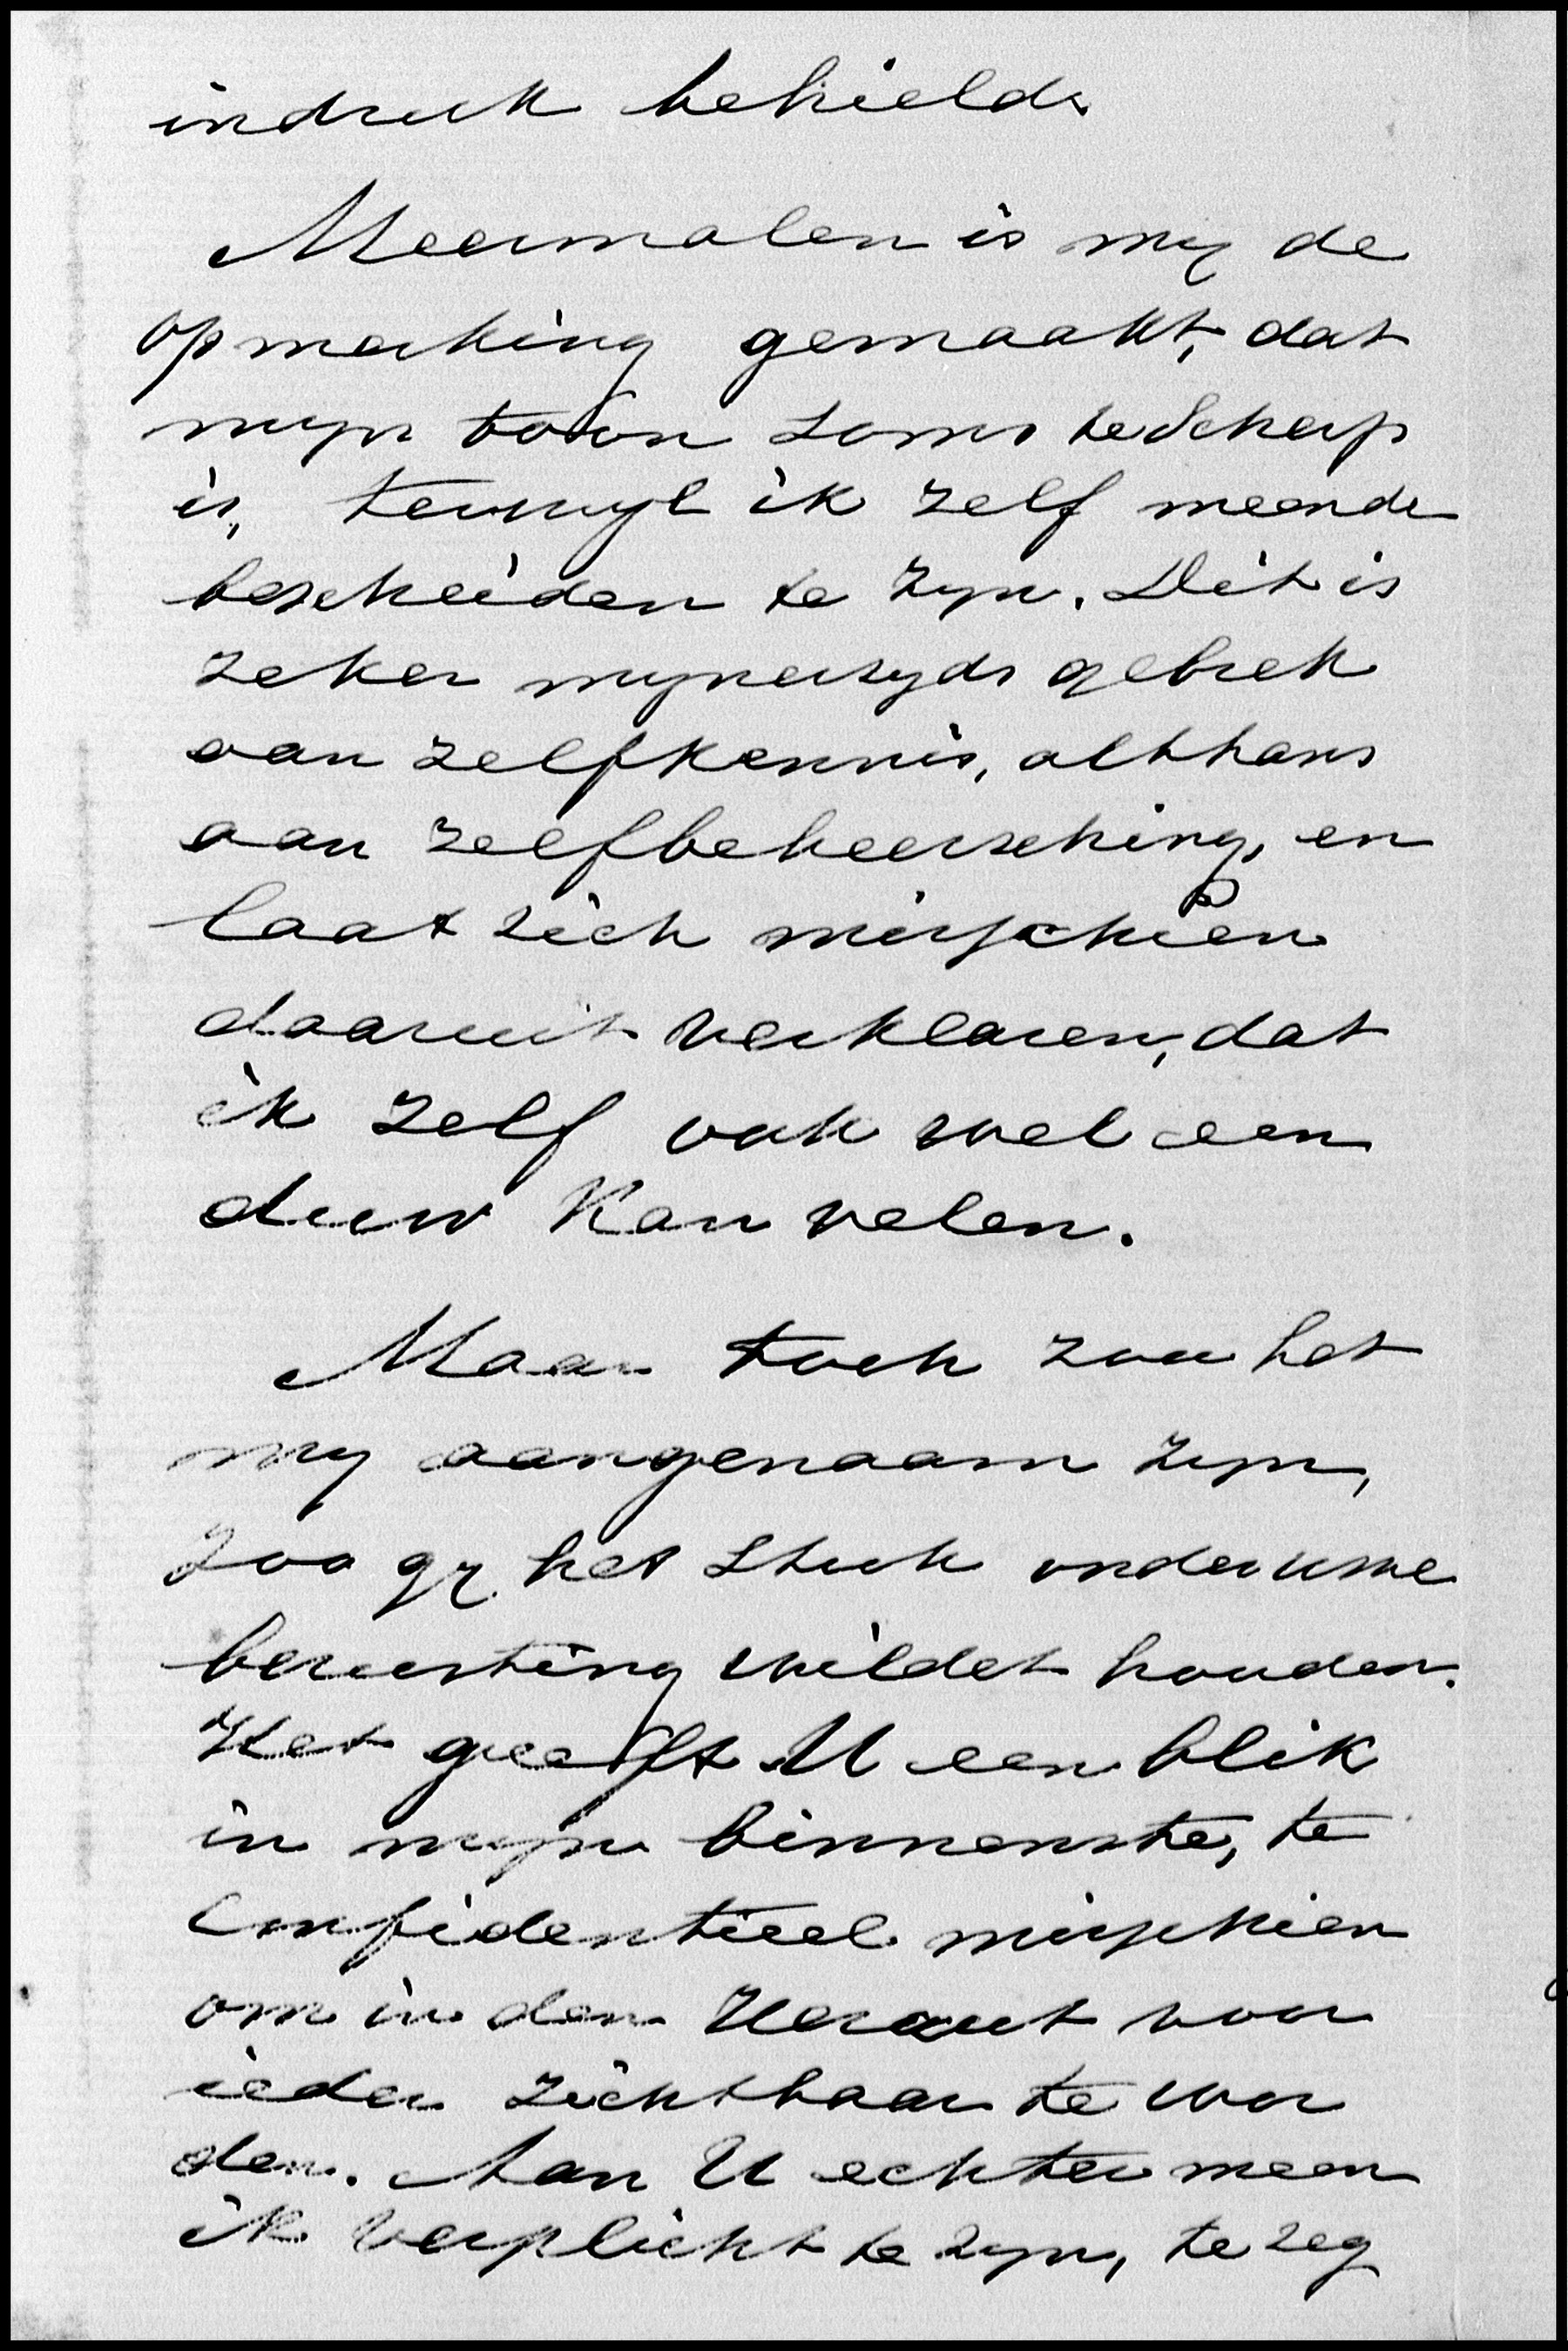 indruk behield.
Meermalen is my de
opmerking gemaakt, dat
myn toon soms te scherp
is, terwyl ik zelf meende
bescheiden te zyn. Dit is
zeker mynerzyds gebrek
aan zelfkennis, althans
aan zelfbeheersching, en
laat zich misschien
daaruit verklaren, dat
ik zelf ook wel een
duw kan velen.
Maar toch zou het
my aangenaam zyn,
zoo gy het stuk onder uwe
berusting wildet houden.
Het geeft U een blik
in myn binnenste, te
confidentieel misschien
om in den Heraut voor
ieder zichtbaar te wor
den. Aan U echter meen
ik verplicht te zyn, te zeg